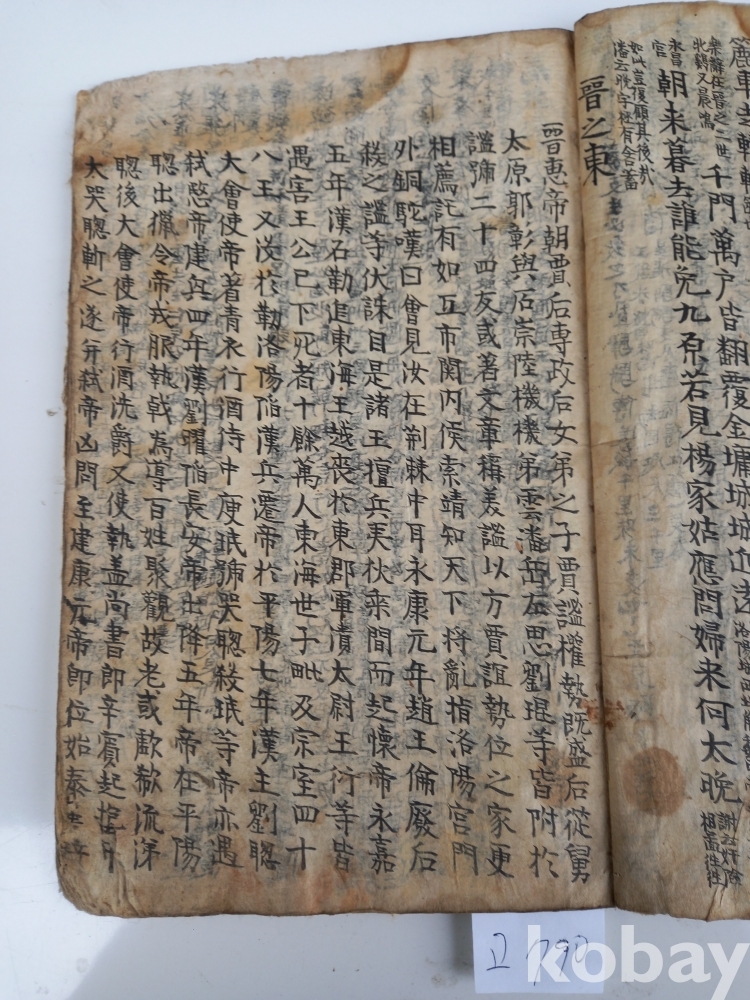 千門萬户皆翻覆金墉城城迩遠
永昌
宮
朝来暮去誰能免九原若見楊家姑應問婦来何太晚
謝云奸險
相蓋往往
如此豈復顧其後哉
潘云晚字極有含蓄
晉之東
晉惠帝朝賈后専政后女弟之子賈謐權勢既盛后從舅
太原郭彰與石崇陸機機弟雲潘岳左思劉琨等皆附於
謐號二十四友或著文章稱美謐以方賈誼勢位之家更
相薦託有如互市関内侯索靖知天下将亂指洛陽宮門
外銅駝嘆曰會見汝在荆棘中耳永康元年趙王倫廢后
殺之謐等伏誅自是諸王擅兵夷狄乗間而起懷帝永嘉
五年漢石勒追東海王越喪於東郡軍潰太尉王衍等皆
遇害王公已下死者十餘萬人東海世子毗及宗室四十
八王又沒於勒洛陽陷漢兵遷帝於平陽七年漢主劉聰
大會使帝著青衣行酒侍中庾珉號哭聰殺珉等帝亦遇
弒愍帝建興四年漢劉曜陷長安帝出降五年帝在平陽
聰出獵令帝戎服執戟為導百姓聚觀故老或歔欷流涕
聰後大會使帝行酒洗爵又使執盖尚書郎辛賓起抱帝
大哭聰斬之遂并弒帝凶問至建康元帝即位始泰